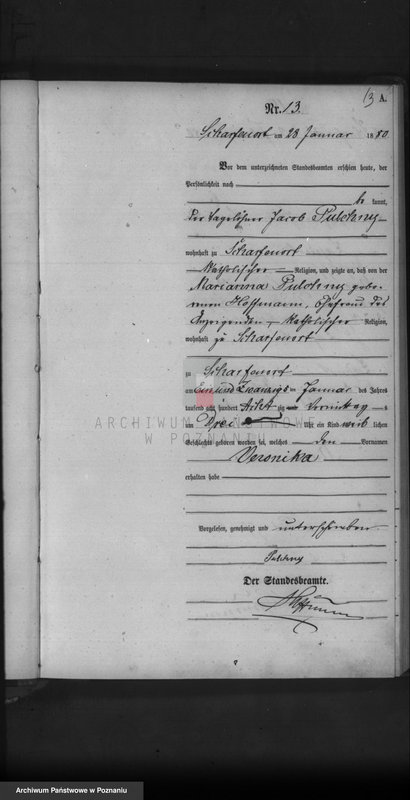 13 A.
Nr. 13.
Scharfenort am 28 Januar 1880
Vor dem unterzeichneten Standesbeamten erschien heute, der
Persönlichkeit nach
be kannt,
der Tagelöhner Jacob Pulchny
wohnhaft zu Scharfenort
Katholischer Religion, und zeigte an, daß von der
Marianna Pulchny gebo-
renen Hoffmann, Ehefrau des
Anzeigenden, Katholischer Religion,
wohnhaft zu Scharfenort
zu Scharfenort
am Ein und Zwanzigs Januar des Jahres
tausend acht hundert Acht zig Vormittag s
um Drei Uhr ein Kind weib lichen
Geschlechts geboren worden sei, welches den Vornamen
Veronika
erhalten habe
Vorgelesen, genehmigt und unterschrieben
Pulchny
Der Standesbeamte.
Hoffmann
ARCHIWUM PAŃSTWOWE
W POZNANIU
Archiwum Państwowe w Poznaniu